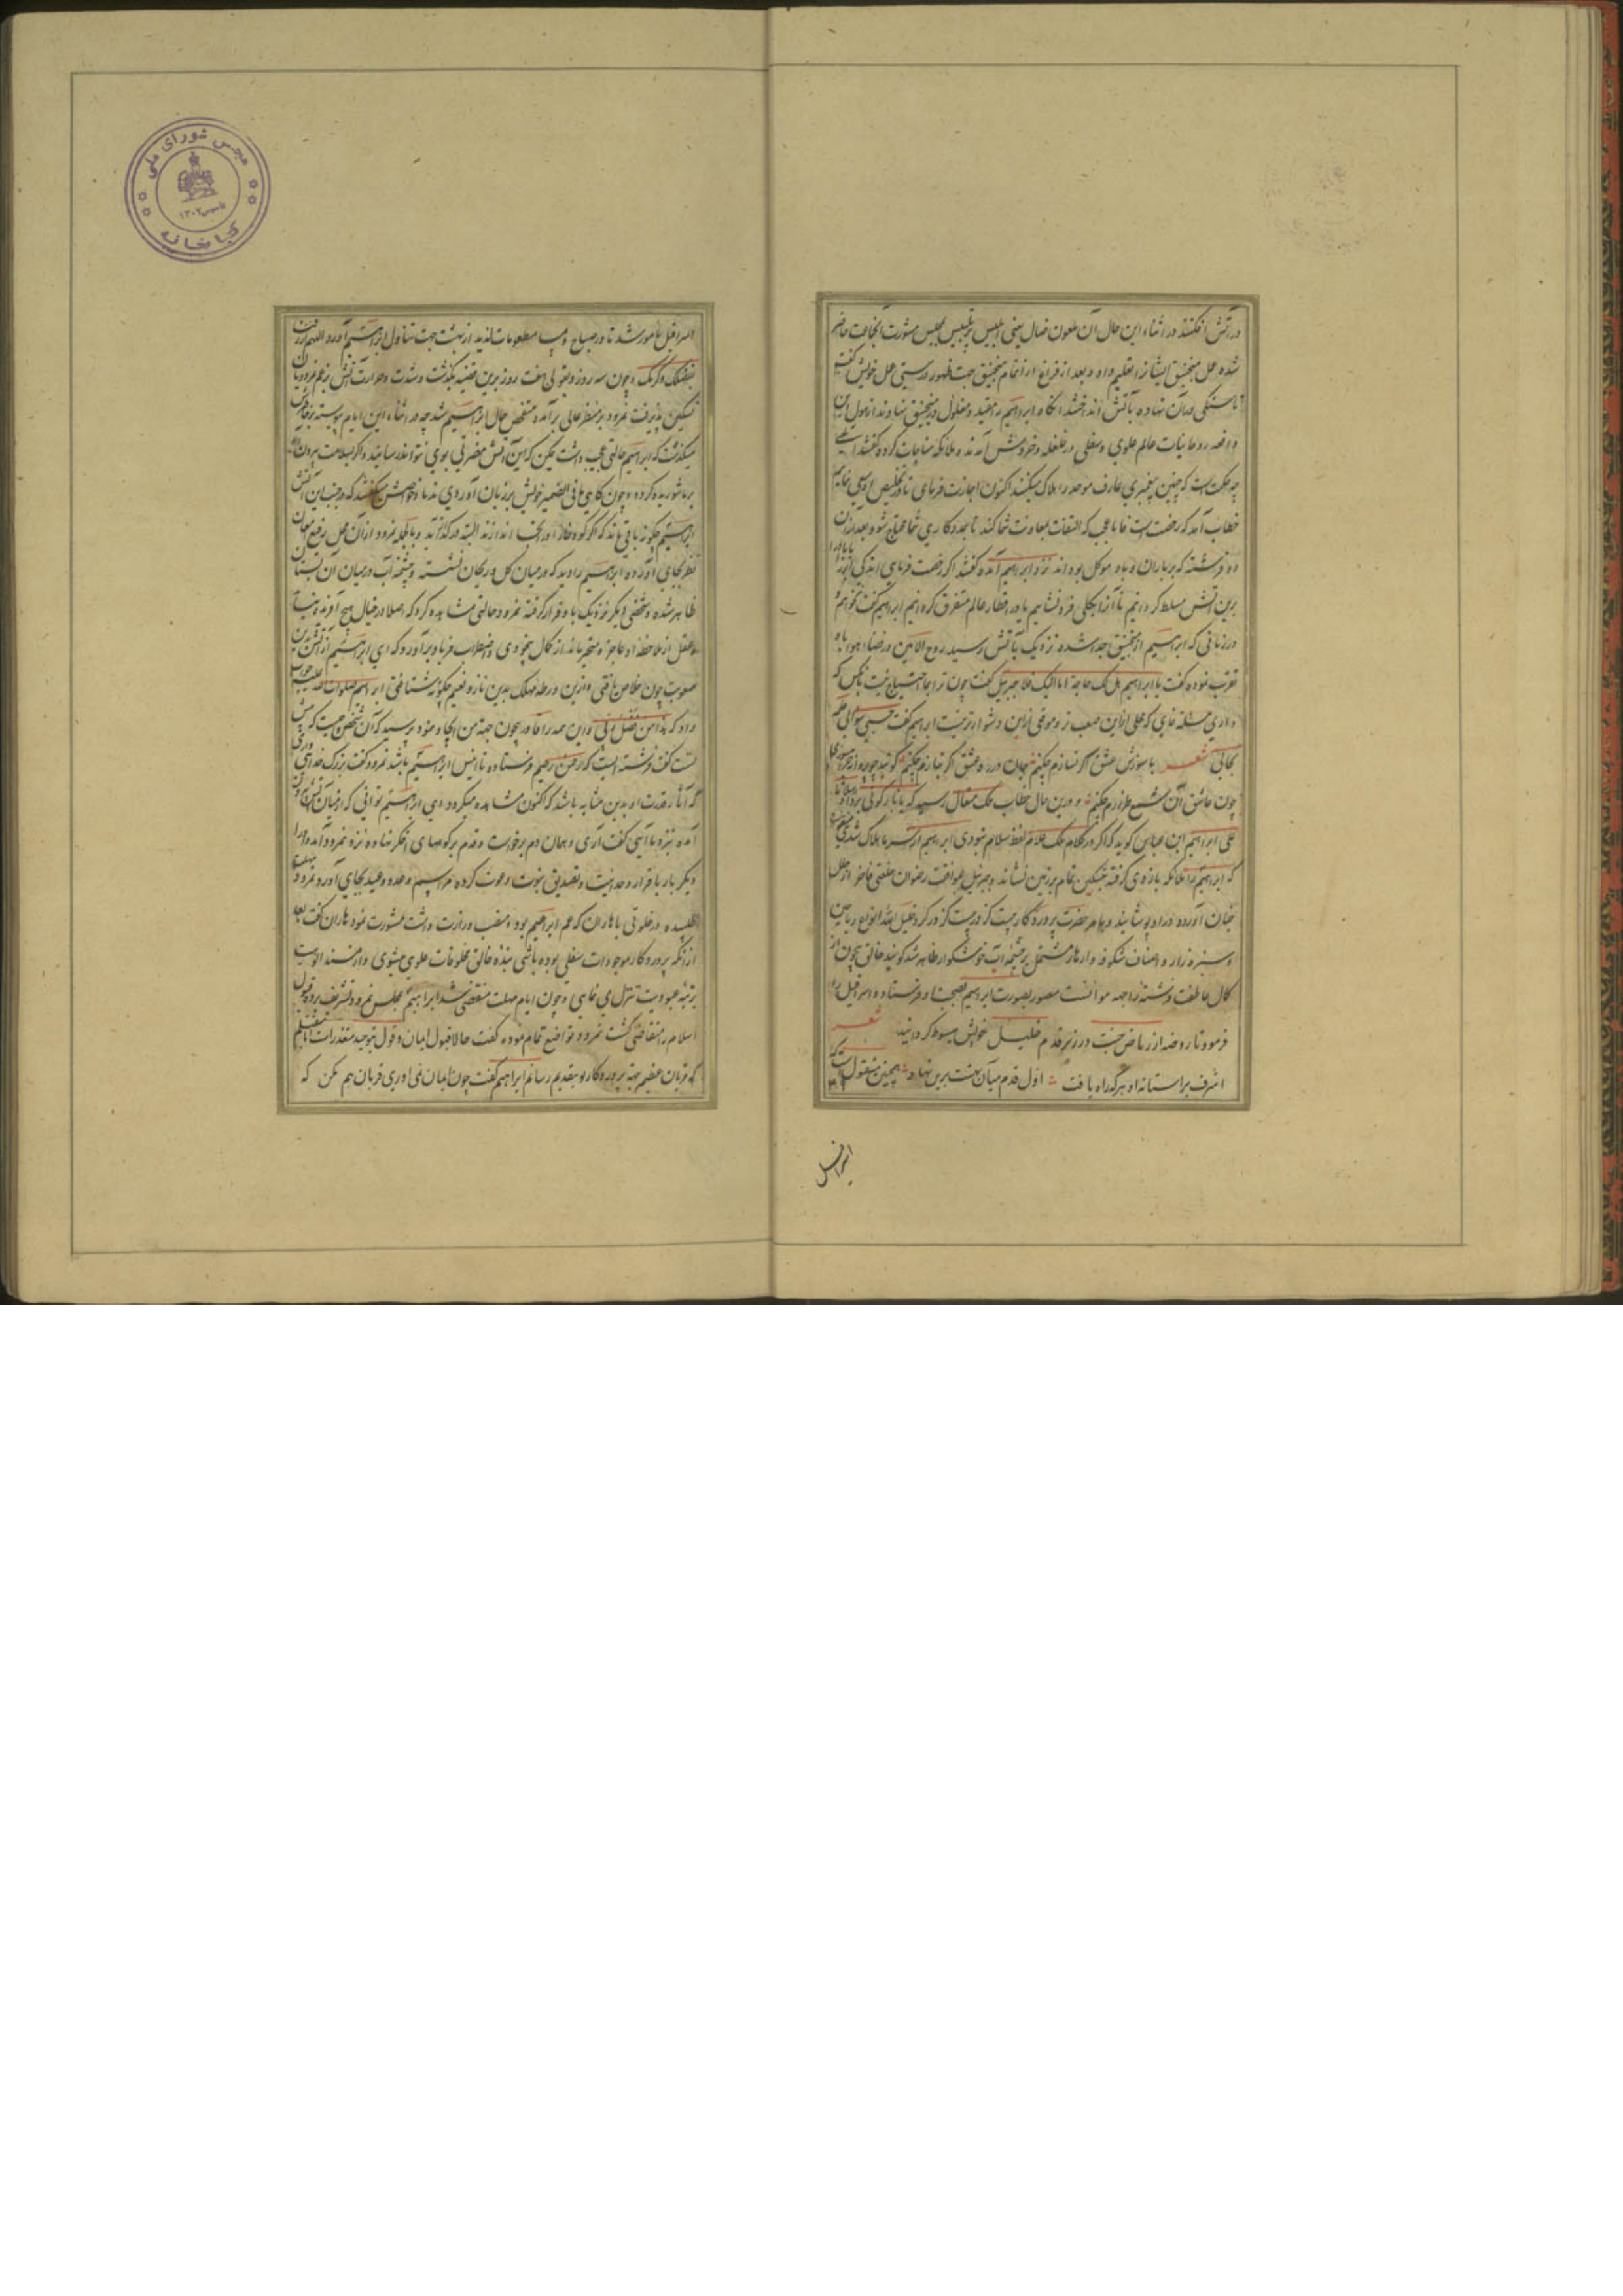 در آتش افکنند در اثناء این حال آن ملعون ضال یعنی ابلیس پرتلبیس بمجلس مشورت آنجماعت حاضر
شده عمل منجنیق ایشانرا تعلیم داد و بعد از فراغ از اتمام منجنیق جهت ظهور درستی عمل خویش گفت
تا سنگی در آن نهاده بآتش انداختند آنگاه ابراهیم را مقید و مغلول در منجنیق نهادند از هول این
واقعه روحانیات عالم علوی و سفلی در غلغله و خروش آمدند و ملائکه مناجات کرده گفتند الهی
چه حکمت است که چنین پیغمبری عارف موحد را هلاک میکنند اکنون اجازت فرمای تا در تخلیص او سعی نماییم
خطاب آمد که رخصت است فاما عجب که التفات بمعاونت شما کند تا بمددکاری شما محتاج شود بعد از آن
دو فرشته که بر باران و باد موکل بودند نزد ابراهیم آمده گفتند اگر رخصت فرمایی اندکی
برین آتش مسلط گردانیم تا آنرا بکلی فرو نشانیم یا در اقطار عالم متفرق گردانیم ابراهیم گفت نخواهم
در زمانی که ابراهیم از منجنیق جدا شده نزدیک بآتش رسید روح الامین در فضاء هوا باو
تقرب نموده گفت یا ابراهیم هل لک حاجة اما الیک فلا جبرئیل گفت چون ترا بما احتیاج نیست بآنکس که
داری مسئلت نمای که محلی ازین صعب تر و موقفی ازین دشوارتر نیست ابراهیم گفت حسبی سؤالی علمه
بحالی شعر با سوزش عشق اگر نسازم چکنم جان در ره عشق اگر نبازم چکنم گویند چو پروانه
چون عاشق آن شمع طرازم چکنم و درین حال خطاب ملک متعال رسید که یا نار کونی بردا و سلاما
علی ابراهیم ابن عباس گوید که اگر در کلام ملک علام لفظ سلام نبودی ابراهیم از سرما هلاک شدی
که ابراهیم را ملائکه بازوی گرفته بتسکین تمام بر زمین نشاند و جبرئیل بموافقت رضوان خلعتی فاخر از حلل
جنان آورده در او پوشانید و بامر حضرت پروردگار بیست گز در بیست گز در گرد خلیل الله انواع ریاحین
و سبزه زار و اصناف شکوفه و ازهار مشتمل بر چشمه آب خوشگوار ظاهر شد گویند خالق بیچون از
کمال عاطفت فرشته را جهة موانست مصور بصورت ابراهیم بصحبت او فرستاد و اسرافیل را
فرمود تا روضه از ریاض جنت در زیر قدم خلیل خویش مبسوط گردانید شعر
اشرف بر آستانه او هر که راه یافت اول قدم میان بهشت برین نهاد همچنین منقول است که
اسرافیل
اسرافیل مأمور شد تا در صباح و مسا مطعومات لذیذ از بهشت جهت تناول ابراهیم آورد
بفضلک و کرمک و چون سه روز و بقولی هفت روز برین قضیه بگذشت و شدت و حرارت آتش بزعم نمرودیان
تسکین پذیرفت نمرود بر منظر عالی برآمده متفحص حال ابراهیم شد چه در اثناء این ایام پیوسته بر خاطرش
میگذشت که ابراهیم حالتی عجیب داشت یمکن که این آتش مضرتی بوی نتواند رسانید و اگر بسلامت بیرون آید
چون گاهی مافی الضمیر خویش بر زبان آوردی ندما و خواصش میگفتند که در جنب این آتش
ابراهیم چگونه باقی ماند که اگر کوه خارا در آنجا اندازند البته در گداز آید و بالجمله نمرود از آن محل رفیع چون
نظر بجای آورد ابراهیم را دید که در میان گل و ریحان نشسته و چشمه آب در میان آن بستان
ظاهر شده و شخصی دیگر نزدیک باو قرار گرفته نمرود حالتی مشاهده کرد که اصلا در خیال هیچ آفریده نیاید
عقل از ملاحظه او عاجز و متحیر ماند از کمال بیخودی و اضطراب فریاد برآورد که ای ابراهیم از آتش بدین
صعوبت چون خلاص یافتی و ازین ورطه مهلک بدین ناز و نعیم چگونه شتافتی ابراهیم صلوات الله علیه جواب
داد که هذا من فضل ربی و این همه را قادر بیچون جهة من ایجاد نمود پرسید که آن شخص کیست که
تست گفت فرشته است که رحمن رحیم فرستاده تا انیس ابراهیم باشد نمرود گفت بزرگ خدائی داری
که آثار قدرت او بدین مثابه باشد که اکنون مشاهده میگردد ای ابراهیم توانی که از میان آتش بیرون
آمده بنزد ما آیی گفت آری و همان دم برخاست و قدم بر کوههای اخگر نهاده نزد نمرود آمد و او را
دیگر بار باقرار وحدانیت و تصدیق نبوت دعوت کرده مراسم وعد و وعید بجای آورد نمرود مهلت
طلبیده در خلوتی با هاران که عم ابراهیم بود و منصب وزارت داشت مشورت نمود هاران گفت بعد
از آنکه پروردگار موجودات سفلی بوده باشی بنده خالق مخلوقات علوی میشوی و از مسند الوهیت
برتبه عبودیت تنزل می نمایی و چون ایام مهلت منقضی شد ابراهیم بمجلس نمرود تشریف برده قبول
اسلام را متقاضی گشت نمرود تواضع تمام نموده گفت حالا قبول ایمان و قول بتوحید متعذر است
که قربان عظیم جهة پروردگار تو بتقدیم رسانم ابراهیم گفت چون ایمان نمی آوری قربان هم مکن که
مجلس شورای ملی
تاسیس ۱۳۰۲
کتابخانه